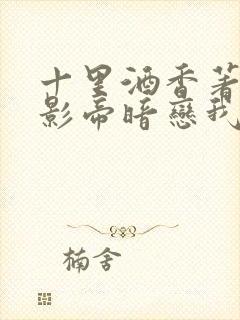 十里酒香著
影帝暗戀我
楠舍